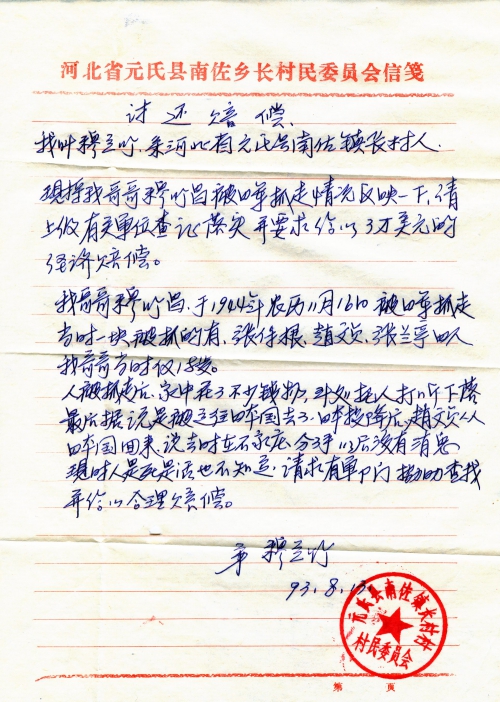 河北省元氏县南佐乡长村民委员会信笺
讨还赔偿
我叫穆兰竹.系河北省元氏县南佐镇长村人.
现将我哥哥穆竹昌被日军抓走情况反映一下,请
上级有关单位查证落实并要求给以3万美元的
经济赔偿。
我哥哥穆竹昌,于1944年农历11月16日被日军抓走
当时一块被抓的有,张仔根、赵文贞、张兰孚四人
我哥哥当时仅18岁。
人被抓走后,家中花了不少钱物,到处托人打听下落
最后据说是被送往日本国去了.日本投降后,赵文贞从
日本国回来,说去时在石家庄分手以后没有消息
现时人是死是活也不知道,请求有关部门帮助查找
并给以合理赔偿。
弟 穆兰竹
93.8.13.
元氏县南佐镇长村村
村民委员会
第 页